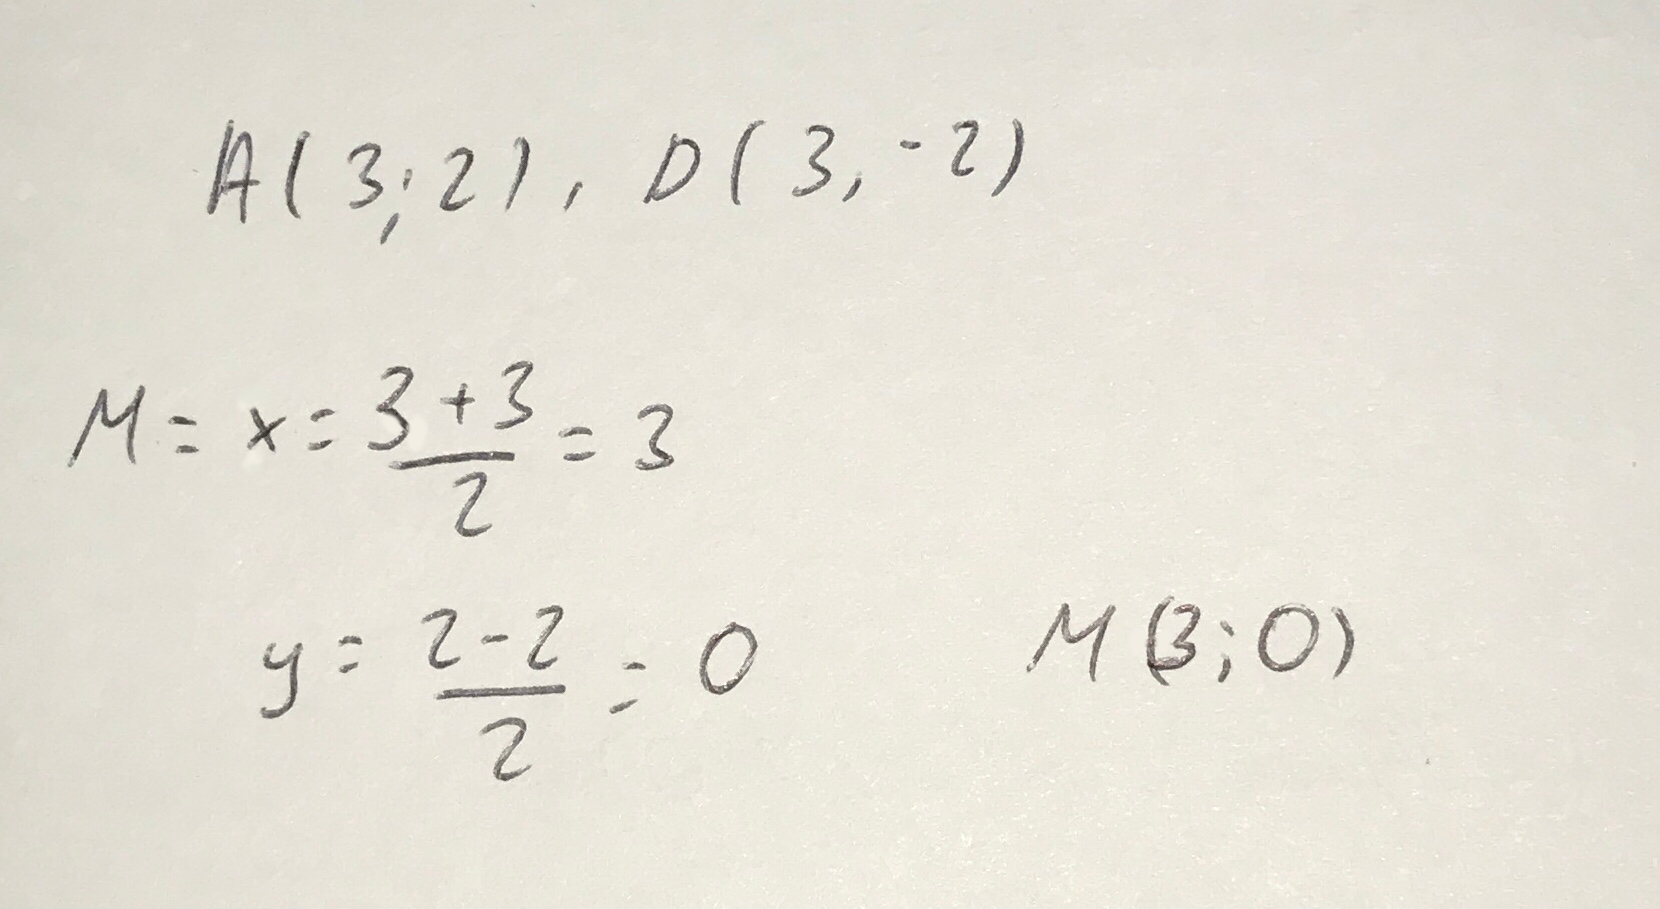 A(3;2), D(3,-2)
M = x = \frac{3+3}{2} = 3
y = \frac{2-2}{2} = 0 M(3;0)